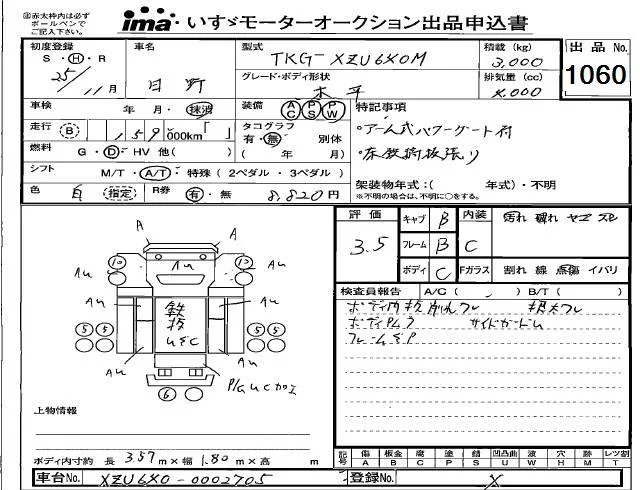 ㊟赤太枠内は必ず
ボールペンで
ご記入下さい。
ima いすゞモーターオークション出品申込書
初度登録 S・H・R 25/11月
車名 日野
型式 TKG-XZU640M
積載 (kg) 3,000
出品 No. 1060
グレード・ボディ形状 木平
排気量 (cc) 4,000
車検 年 月・抹消
装備 AC PS PW
特記事項
・アーム式パワーゲート付
・床鉄鋼板張り
走行 (B) 159,000km「 」
タコグラフ 有・無 別体 ( 年 月)
燃料 G・D・HV 他( )
シフト M/T・A/T・特殊 (2ペダル・3ペダル)
架装物年式:( 年式)・不明
※不明の場合は、不明に○をする。
色 白 (指定)
R券 有・無 8,820円
評価 3.5
キャブ B
内装 C
汚れ 破れ ヤニ スレ
フレーム B
ボディ C
Fガラス 割れ 線 点傷 イバリ
検査員報告 A/C ( ) B/T ( )
サイドガード
A A
Au Au Au
Au Au
Au Au
鉄板
UEC
5 5 5 5
6
P/G UC 加工
上物情報
ボディ内寸約 長 3.57 m×幅 1.80 m×高 m
記号 傷A 板金B 腐C 塗P 錆S 凹凸曲U 波W 穴H 跡M レツ割T
車台No. XZU640-0002705
登録No. ×